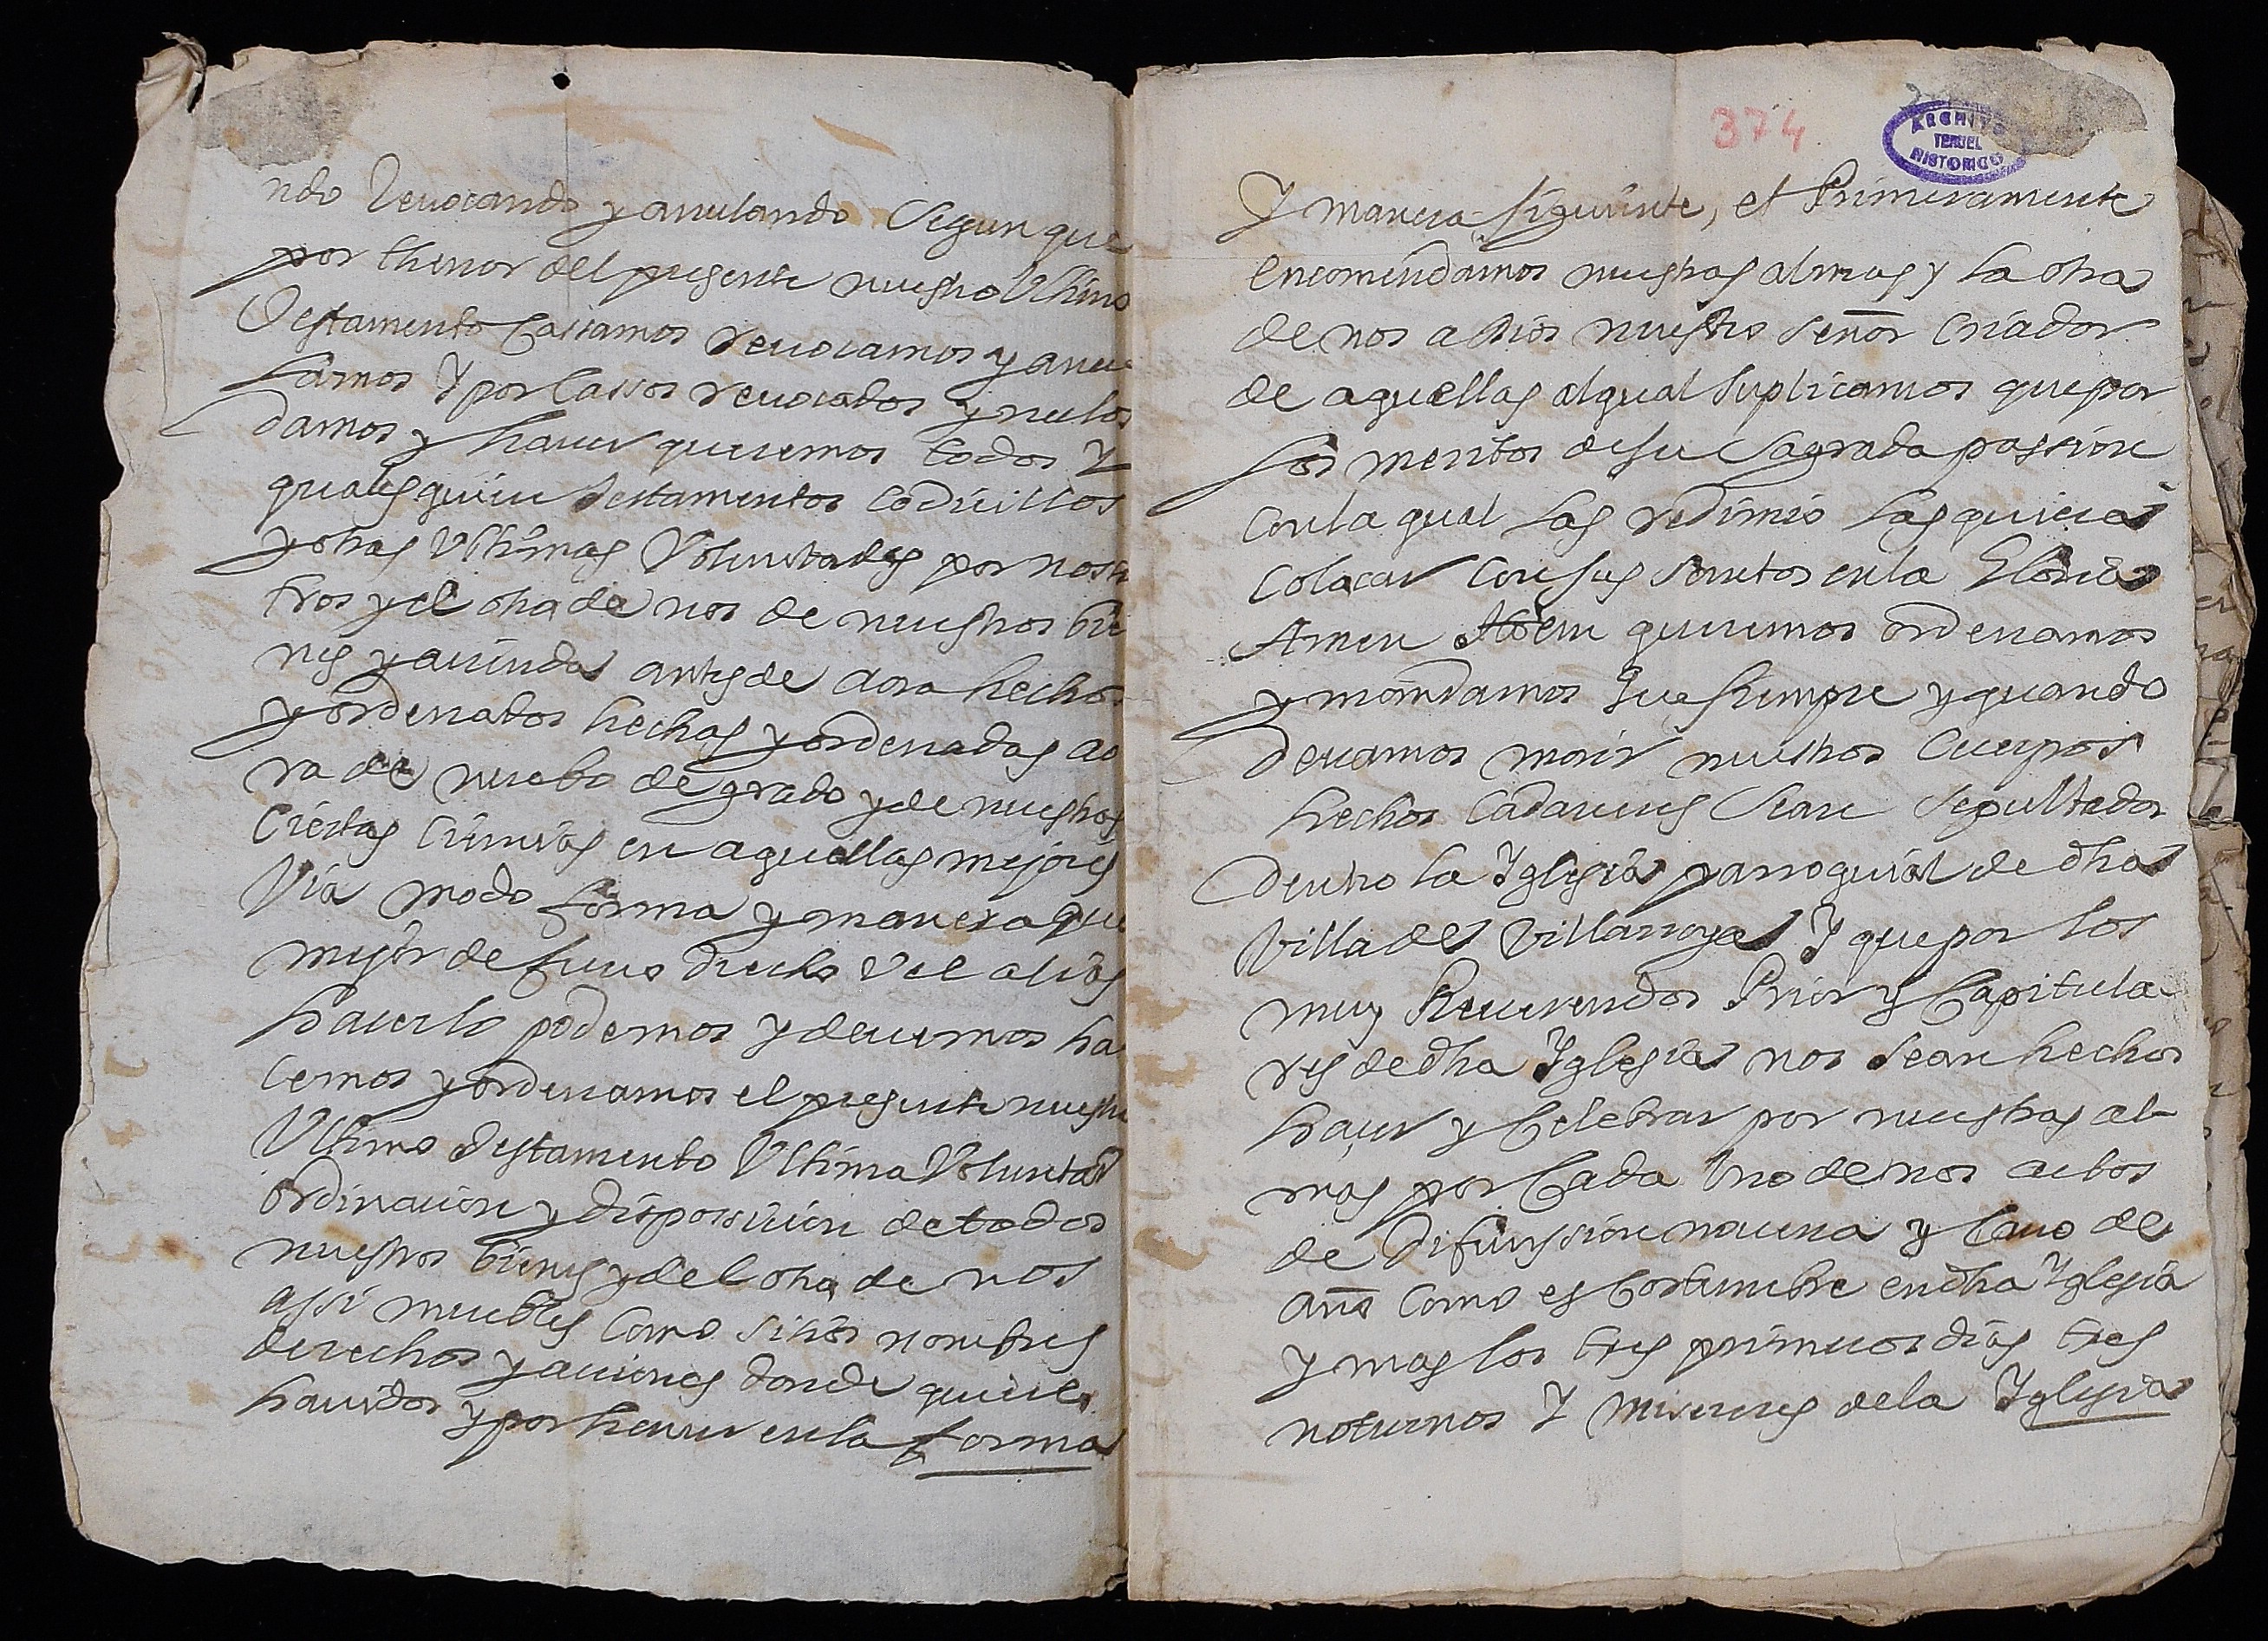 ndo Revocando y anulando Segun que
por thenor del presente nuestro Ultimo
Testamento Cassamos revocamos y anu
lamos Y por Cassos revocados y nulos
damos y haver queremos todos Y
qualesquiere testamentos codicillos
y otras Ultimas Voluntades por noso
tros y el otra de nos de nuestros bie
nes y acienda antes de aora hechos
y ordenados hechas y ordenadas ao
ra de nuebo de grado y de nuestras
Ciertas Ciencias en aquellas mejores
Via modo forma y manera que
mejor de fuero drecho Vel alias
hacerlo podemos y devemos ha
cemos y ordenamos el presente nuestro
Ultimo Testamento Ultima Voluntad
ordinacion y disposicion de todos
nuestros bienes y del otra de nos
assi muebles Como sitios nombres
derechos y aciones donde quiere
havidos y por haver en la forma
374
ARCHIVO
TERUEL
HISTORICO
Y manera siguiente, et Primeramente
encomendamos nuestras almas y la otra
de nos a Dios nuestro señor Criador
de aquellas al qual suplicamos que por
los meritos de su Sagrada passion
con la qual las redimio las quiera
colacar con sus santos en la Gloria
Amen Item queremos ordenamos
y mandamos que siempre y quando
devamos morir nuestros Cuerpos
hechos Cadaveres Sean Sepultados
dentro la Yglesia parroquial de dha
Villa de Villarroya Y que por los
muy Reverendos Prior y Capitula
res de dha Yglesia nos sean hechos
hacer y Celebrar por nuestras al
mas por Cada Uno de nos actos
de Difunssion novena y Cavo de
año Como es Costumbre en dha Yglesia
y mas los tres primeros dias tres
noturnos Y misereres de la Yglesia